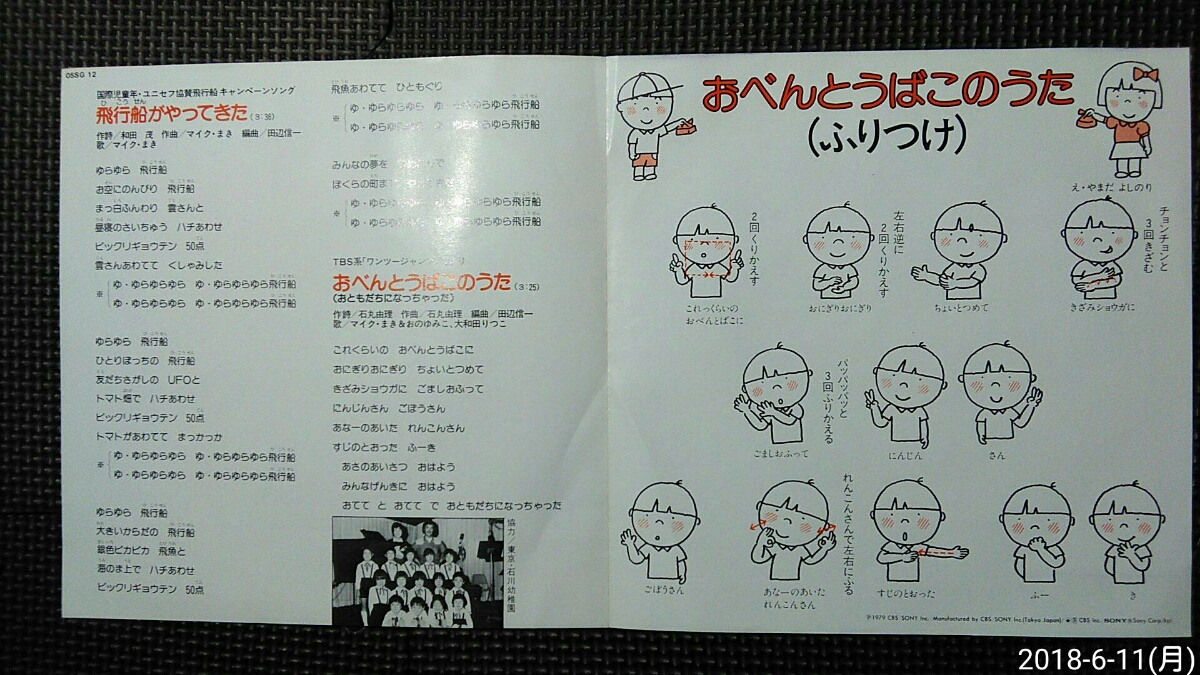 05SG 12
国際児童年・ユニセフ協賛飛行船 キャンペーンソング
飛行船がやってきた(3:36)
作詩/和田 茂 作曲/マイク・まき 編曲/田辺信一
歌/マイク・まき
ゆらゆら 飛行船
お空にのんびり 飛行船
まっ白ふんわり 雲さんと
昼寝のさいちゅう ハチあわせ
ビックリギョウテン 50点
雲さんあわてて くしゃみした
※ ゆ・ゆらゆらゆら ゆ・ゆらゆらゆら飛行船
ゆ・ゆらゆらゆら ゆ・ゆらゆらゆら飛行船
ゆらゆら 飛行船
ひとりぼっちの 飛行船
友だちさがしの UFOと
トマト畑で ハチあわせ
ビックリギョウテン 50点
トマトがあわてて まっかっか
※ ゆ・ゆらゆらゆら ゆ・ゆらゆらゆら飛行船
ゆ・ゆらゆらゆら ゆ・ゆらゆらゆら飛行船
ゆらゆら 飛行船
大きいからだの 飛行船
銀色ピカピカ 飛魚と
海のま上で ハチあわせ
ビックリギョウテン 50点
飛魚あわてて ひともぐり
※ ゆ・ゆらゆらゆら ゆ・ゆらゆらゆら飛行船
ゆ・ゆらゆらゆら ゆ・ゆらゆらゆら飛行船
みんなの夢を
ぼくらの町ま
※ ゆ・ゆらゆらゆら ゆ・ゆらゆらゆら飛行船
ゆ・ゆらゆらゆら ゆ・ゆらゆらゆら飛行船
TBS系「ワンツージャン
おべんとうばこのうた(3:25)
(おともだちになっちゃった)
作詩/石丸由理 作曲/石丸由理 編曲/田辺信一
歌/マイク・まき&おのゆみこ、大和田りつこ
これくらいの おべんとうばこに
おにぎりおにぎり ちょいとつめて
きざみショウガに ごましおふって
にんじんさん ごぼうさん
あなーのあいた れんこんさん
すじのとおった ふーき
あさのあいさつ おはよう
みんなげんきに おはよう
おてて と おてて で おともだちになっちゃった
協力/東京・石川幼稚園
おべんとうばこのうた
(ふりつけ)
え・やまだ よしのり
2回くりかえす
これっくらいの
おべんとばこに
左右逆に
2回くりかえす
おにぎりおにぎり
ちょいとつめて
チョンチョンと
3回きざむ
きざみショウガに
ごましおふって
パッパッパッと
3回ふりかえる
にんじん
さん
ごぼうさん
あなーのあいた
れんこんさん
れんこんさんで左右にふる
すじのとおった
ふー
き
Ⓟ1979 CBS/SONY Inc. Manufactured by CBS/SONY Inc(Tokyo Japan)/★Ⓡ CBS Inc. SONY Ⓡ Sony Corp.
2018-6-11(月)